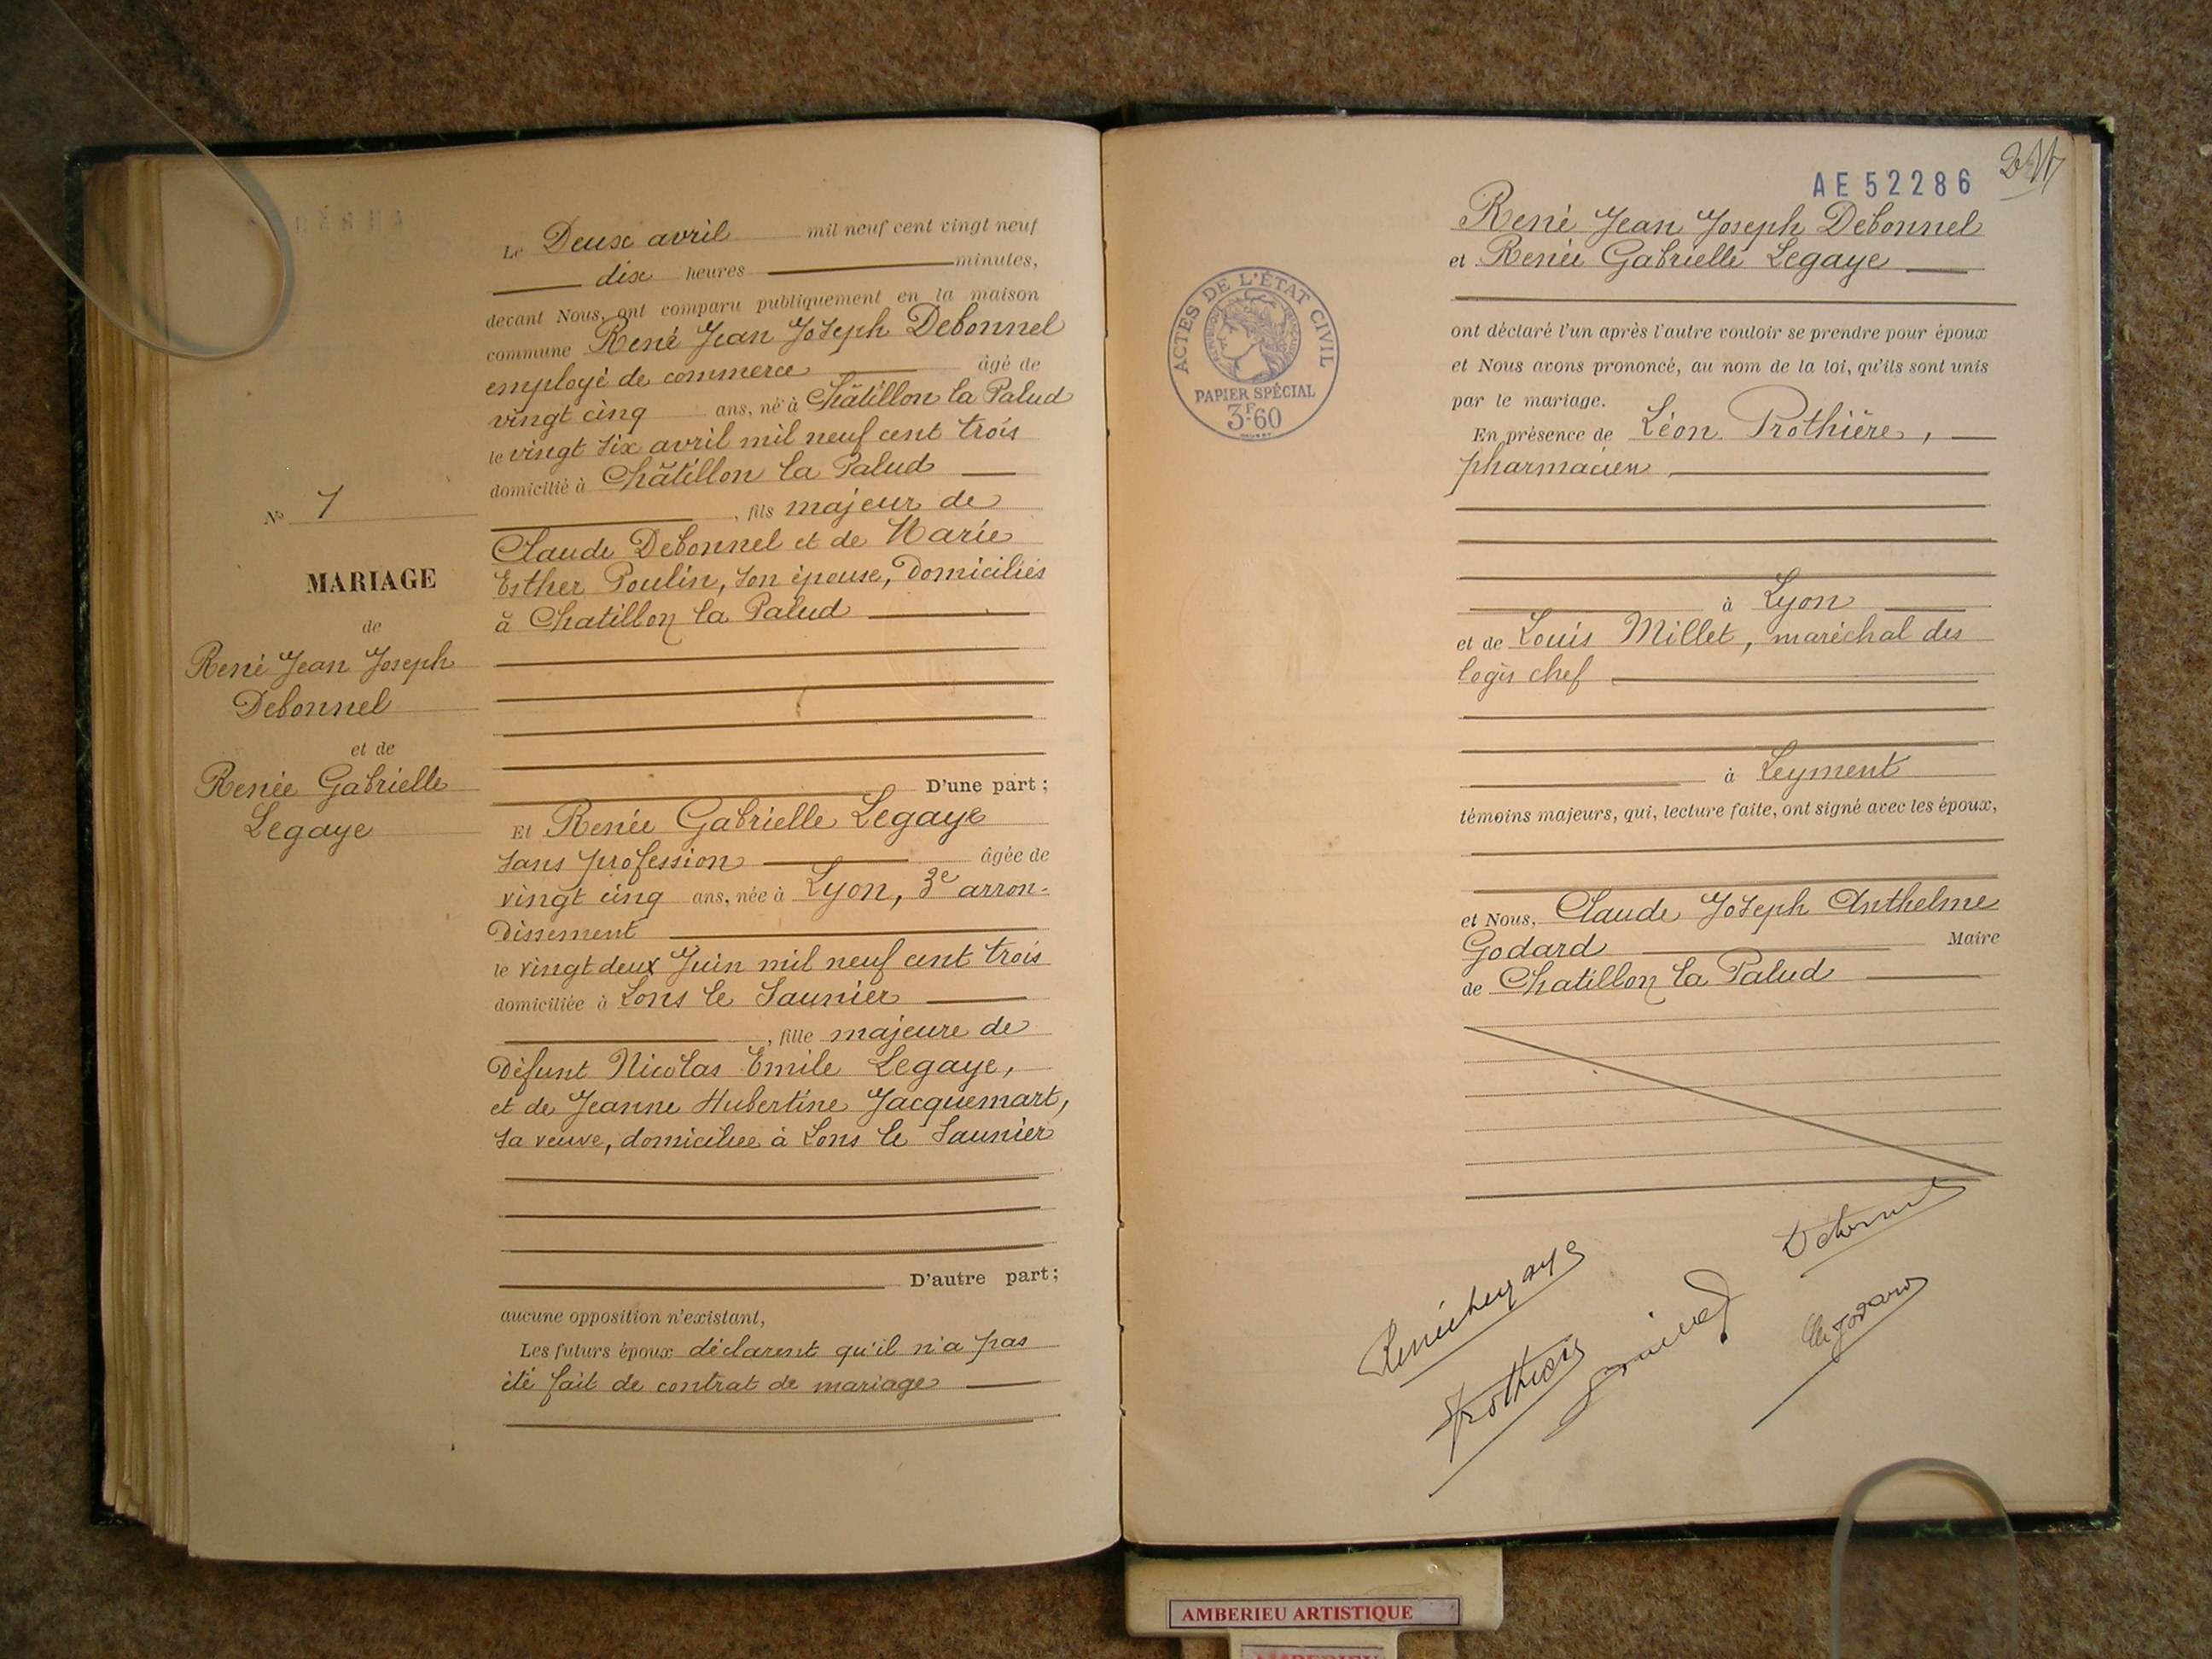 Nº 7
MARIAGE
de
René Jean Joseph
Debonnel
et de
Renée Gabrielle
Legaye
Le Deux avril mil neuf cent vingt neuf
dix heures minutes,
devant Nous, ont comparu publiquement en la maison
commune René Jean Joseph Debonnel
employé de commerce âgé de
vingt cinq ans, né à Châtillon la Palud
le vingt six avril mil neuf cent trois
domicilié à Châtillon la Palud
, fils majeur de
Claude Debonnel et de Marie
Esther Poulin, son épouse, Domiciliés
à Chatillon la Palud
D'une part ;
Et Renée Gabrielle Legaye
sans profession âgée de
vingt cinq ans, née à Lyon, 3e arron-
dissement
le vingt deux Juin mil neuf cent trois
domiciliée à Lons le Saunier
, fille majeure de
Défunt Nicolas Emile Legaye,
et de Jeanne Hubertine Jacquemart,
sa veuve, domiciliée à Lons le Saunier
D'autre part ;
aucune opposition n'existant,
Les futurs époux déclarent qu'il n'a pas
été fait de contrat de mariage
AE 52286
ACTES DE L'ÉTAT CIVIL
PAPIER SPÉCIAL
3F.60
René Jean Joseph Debonnel
et Renée Gabrielle Legaye
ont déclaré l'un après l'autre vouloir se prendre pour époux
et Nous avons prononcé, au nom de la loi, qu'ils sont unis
par le mariage.
En présence de Léon Prothière,
pharmacien
à Lyon
et de Louis Millet, maréchal des
logis chef
à Leyment
témoins majeurs, qui, lecture faite, ont signé avec les époux,
et Nous, Claude Joseph Anthelme
Godard Maire
de Chatillon la Palud
Debonnel
Renée Legaye
Prothière
Godard
AMBERIEU ARTISTIQUE